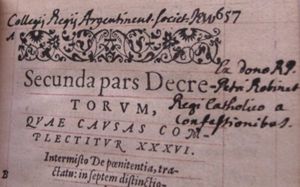 Collegij Regij Argentinens. Societ. Jesu 657
A
Secunda pars Decre-
TORVM,
QVAE CAVSAS COM-
PLECTITVR XXXVI.
Ex dono RP.
Petri Robinet
Regi Catholico a
Confessionibus.
Intermisto De pœnitentia, tra-
B
ctatu: in septem distinctio-